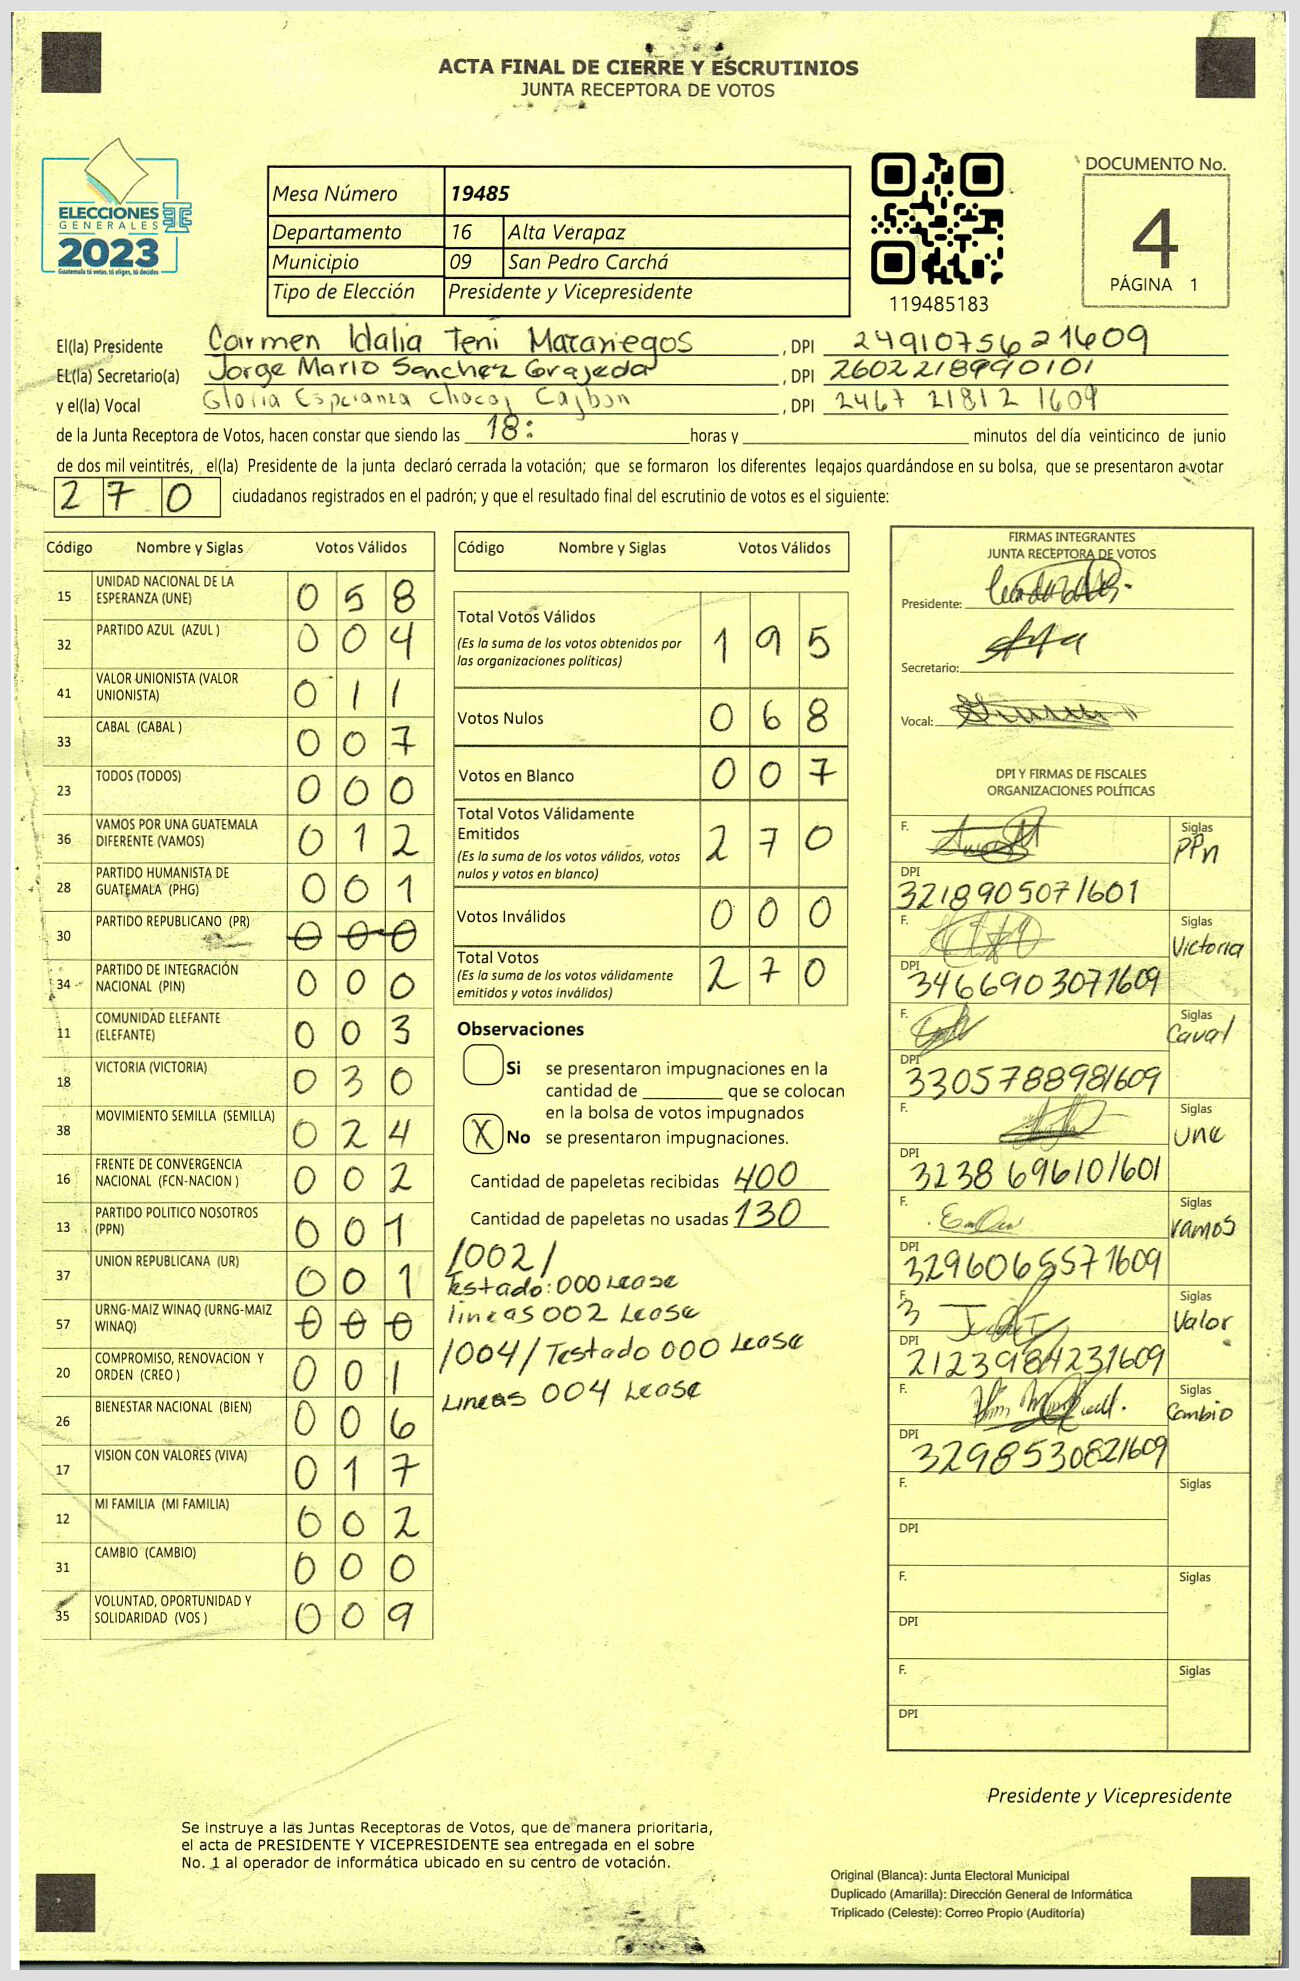 ACTA FINAL DE CIERRE Y ESCRUTINIOS
JUNTA RECEPTORA DE VOTOS
ELECCIONES
GENERALES
2023
Guatemala tú votas, tú eliges, tú decides
Mesa Número 19485
Departamento 16 Alta Verapaz
Municipio 09 San Pedro Carchá
Tipo de Elección Presidente y Vicepresidente
119485183
DOCUMENTO No.
4
PÁGINA 1
El(la) Presidente Carmen Idalia Teni Mazariegos , DPI 2491075621609
EL(la) Secretario(a) Jorge Mario Sanchez Grajeda , DPI 2602218990101
y el(la) Vocal Gloria Esperanza Chocoj , DPI 2467 21812 1609
de la Junta Receptora de Votos, hacen constar que siendo las 18: horas y minutos del día veinticinco de junio
de dos mil veintitrés, el(la) Presidente de la junta declaró cerrada la votación; que se formaron los diferentes legajos guardándose en su bolsa, que se presentaron a votar
270 ciudadanos registrados en el padrón; y que el resultado final del escrutinio de votos es el siguiente:
Código Nombre y Siglas Votos Válidos
15 UNIDAD NACIONAL DE LA ESPERANZA (UNE) 058
32 PARTIDO AZUL (AZUL ) 004
41 VALOR UNIONISTA (VALOR UNIONISTA) 011
33 CABAL (CABAL ) 007
23 TODOS (TODOS) 000
36 VAMOS POR UNA GUATEMALA DIFERENTE (VAMOS) 012
28 PARTIDO HUMANISTA DE GUATEMALA (PHG) 001
30 PARTIDO REPUBLICANO (PR) 000
34 PARTIDO DE INTEGRACIÓN NACIONAL (PIN) 000
11 COMUNIDAD ELEFANTE (ELEFANTE) 003
18 VICTORIA (VICTORIA) 030
38 MOVIMIENTO SEMILLA (SEMILLA) 024
16 FRENTE DE CONVERGENCIA NACIONAL (FCN-NACION ) 002
13 PARTIDO POLITICO NOSOTROS (PPN) 001
37 UNION REPUBLICANA (UR) 001
57 URNG-MAIZ WINAQ (URNG-MAIZ WINAQ) 000
20 COMPROMISO, RENOVACION Y ORDEN (CREO ) 001
26 BIENESTAR NACIONAL (BIEN) 006
17 VISION CON VALORES (VIVA) 017
12 MI FAMILIA (MI FAMILIA) 002
31 CAMBIO (CAMBIO) 000
35 VOLUNTAD, OPORTUNIDAD Y SOLIDARIDAD (VOS ) 009
Código Nombre y Siglas Votos Válidos
Total Votos Válidos 195
(Es la suma de los votos obtenidos por
las organizaciones políticas)
Votos Nulos 068
Votos en Blanco 007
Total Votos Válidamente
Emitidos 270
(Es la suma de los votos válidos, votos
nulos y votos en blanco)
Votos Inválidos 000
Total Votos 270
(Es la suma de los votos válidamente
emitidos y votos inválidos)
Observaciones
Si se presentaron impugnaciones en la
cantidad de que se colocan
en la bolsa de votos impugnados
X No se presentaron impugnaciones.
Cantidad de papeletas recibidas 400
Cantidad de papeletas no usadas 130
/002/
Testado: 000 Lease
lineas 002 Lease
/004/ Testado 000 Lease
Lineas 004 Lease
FIRMAS INTEGRANTES
JUNTA RECEPTORA DE VOTOS
Presidente:
Secretario:
Vocal:
DPI Y FIRMAS DE FISCALES
ORGANIZACIONES POLÍTICAS
F. Siglas PPn
DPI 3218905071601
F. Siglas Victoria
DPI 3466903071609
F. Siglas Caval
DPI 3305788981609
F. Siglas une
DPI 3238 696101601
F. Siglas vamos
DPI 3296065571609
F. Siglas Valor
DPI 2123984231609
F. Siglas Cambio
DPI 3298530821609
F. Siglas
DPI
F. Siglas
DPI
F. Siglas
DPI
Presidente y Vicepresidente
Se instruye a las Juntas Receptoras de Votos, que de manera prioritaria,
el acta de PRESIDENTE Y VICEPRESIDENTE sea entregada en el sobre
No. 1 al operador de informática ubicado en su centro de votación.
Original (Blanca): Junta Electoral Municipal
Duplicado (Amarilla): Dirección General de Informática
Triplicado (Celeste): Correo Propio (Auditoría)